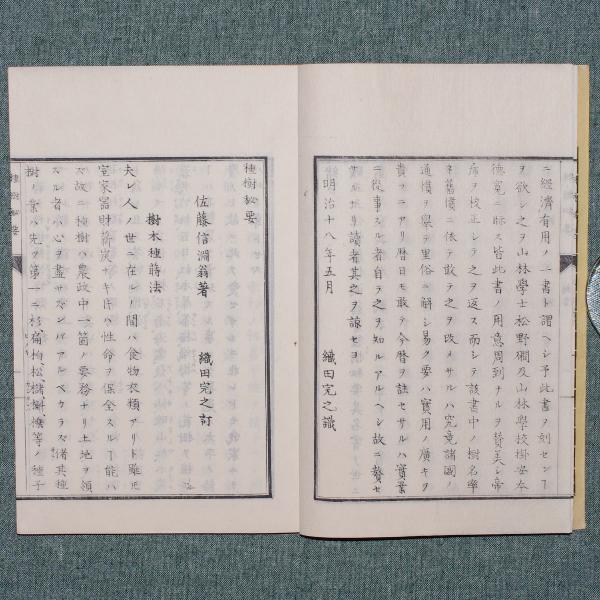 ニ經濟有用ノ一書ト謂ヘシ予此書ヲ刻センヿ
ヲ欲シ之ヲ山林學士松野礀及山林學校掛安本
德寛ニ眎ス皆此書ノ用意周到ナルヲ贊美シ帝
席ヲ校正シテ之ヲ返ス而シテ該書中ノ樹名率
子舊慣ニ依テ敢テ之ヲ改メサルハ究竟諸國ノ
通慣ヲ擧テ里俗ニ解シ易ク要ハ實用ノ廣キヲ
貴フニアリ曆日モ敢テ今曆ヲ註セサルハ實業
ニ從事スル者自ラ之ヲ知ルアルヘシ故ニ贅セ
サルナリ讀者其之ヲ諒セヨ
明治十八年五月
織田完之識
種樹秘要
佐藤信淵翁著
織田完之訂
樹木種蒔法
夫レ人ノ世ニ在ルノ間ハ食物衣類アリト雖𪜈
室家器財薪炭ナキ𪜈ハ性命ヲ保全スルヿ能ハ
ス故ニ種樹ハ農政中一箇ノ要務ナリ土地ヲ領
スル者ハ心ヲ盡サズンバアルベクラズ諸其種
樹ノ業ハ先ツ第一ニ杉扁柏松櫧櫟等ノ種子
種樹秘要